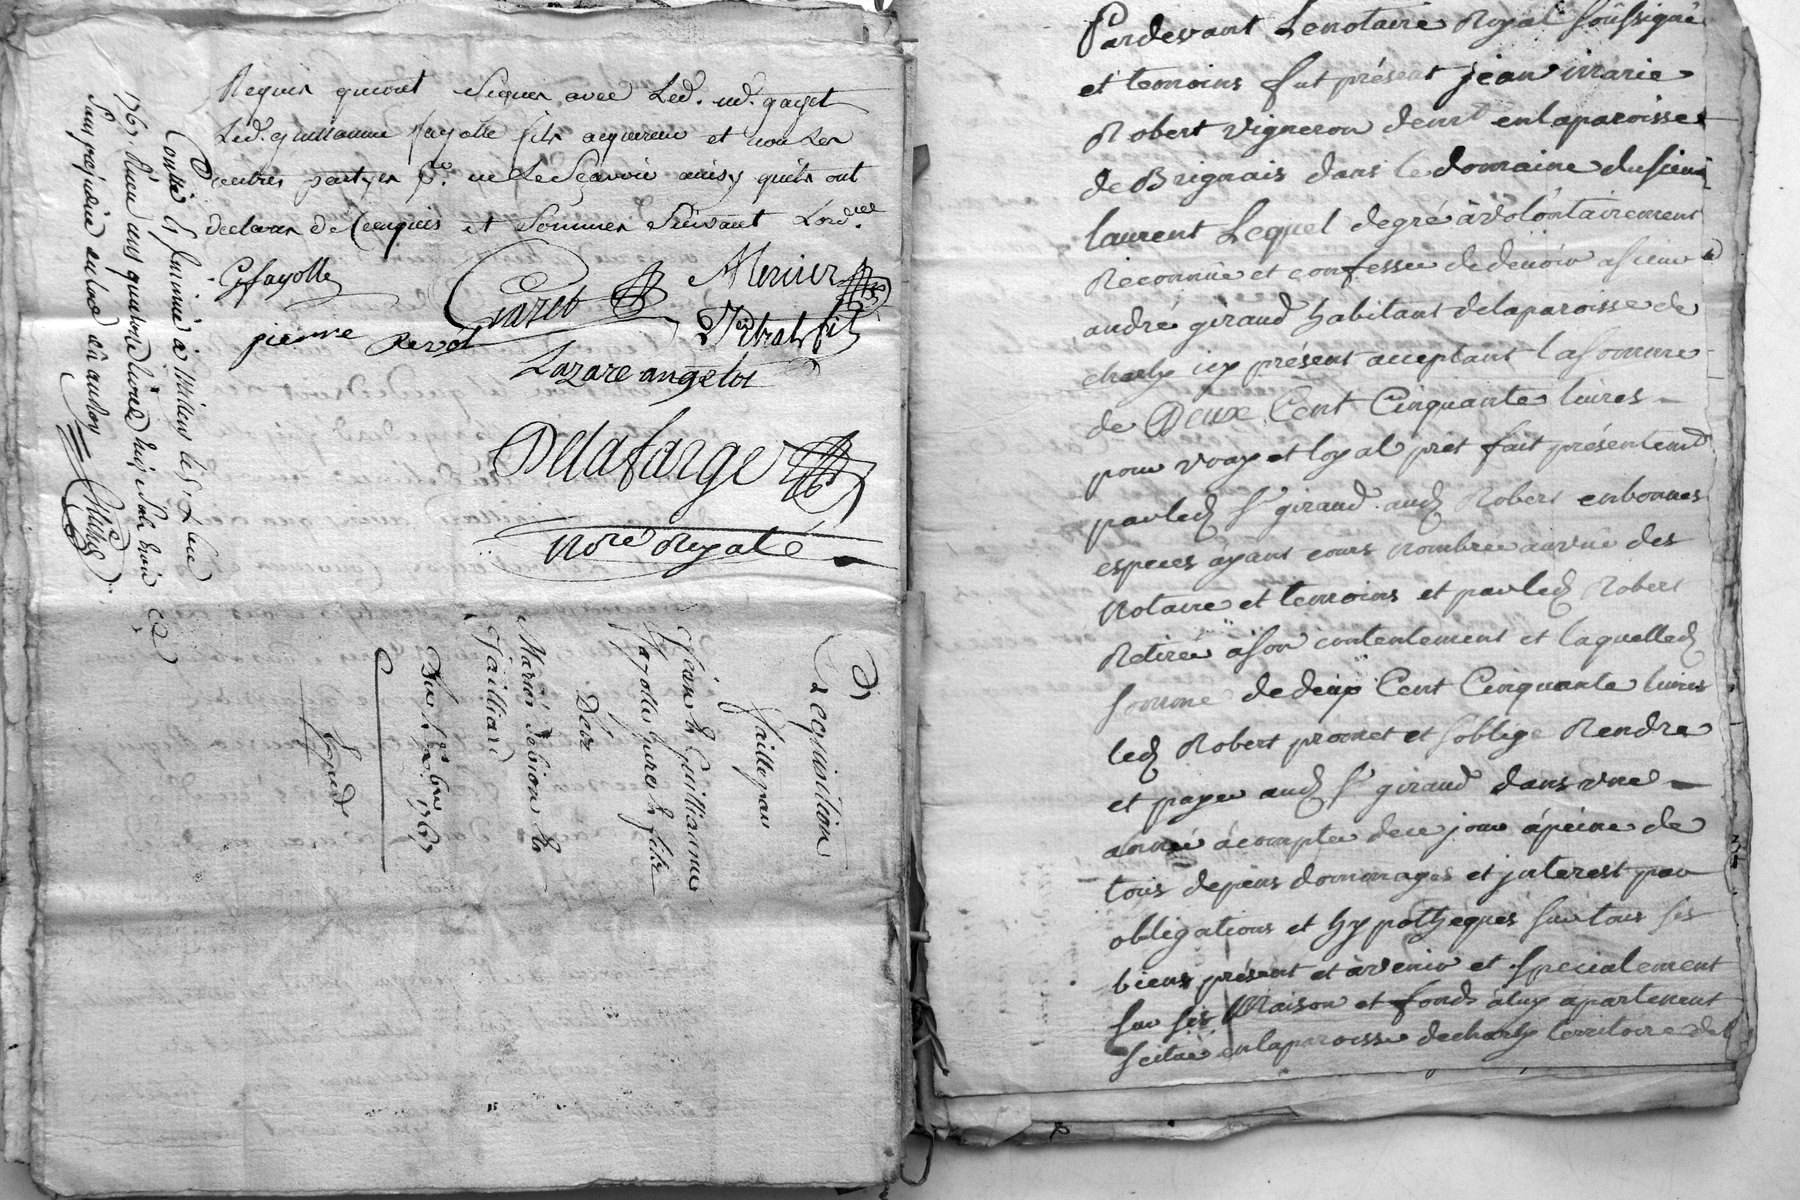 Requis qui ont Signer avec Led. md. gayet
Led. guillaume fayolle fils acquereur et non Les
autres partyes p. ne Le Sçavoir ainsy quils ont
declarer de Ce enquis et Sommer Suivant Lord.nce
G fayolle
Gayet
Mercier
pierre Revol
Lazare angelot
Delafarge
No.re Royal
Controllé et Insinué à Millery le
1767. Reçu
Sans préjudice
Acquisition
faitte par
Jean & Guilliaume
fayolle Pere & fils
De
Marie
Gailliard
1767
Expedié
Pardevant Le notaire Royal Soussigné
et temoins fut présent jean marie
Robert vigneron demt en la paroisse
de Brignais dans le domaine du sieur
laurent Lequel de gré à volontairement
Reconnüe et confessee de devoir a sieur
andré giraud habitant de la paroisse de
charly icy présent acceptant la somme
de Deux Cent Cinquante livres
pour vray et loyal prêt fait présentemt
par led Sr giraud aud Robert en bonnes
especes ayant cours nombrée au vüe des
Notaire et temoins et par led Robert
Retirée à son contentement et laquelled
somme de deux Cent Cinquante livres
led Robert promet et soblige Rendre
et payer aud Sr giraud dans vne
année à compter de ce jour à peine de
tous depens dommages et jnterest par
obligations et hypotheques sur tous ses
biens présent et à venir et specialement
sur ses Maison et fonds à luy apartenent
scitué en la paroisse de charly territoire del